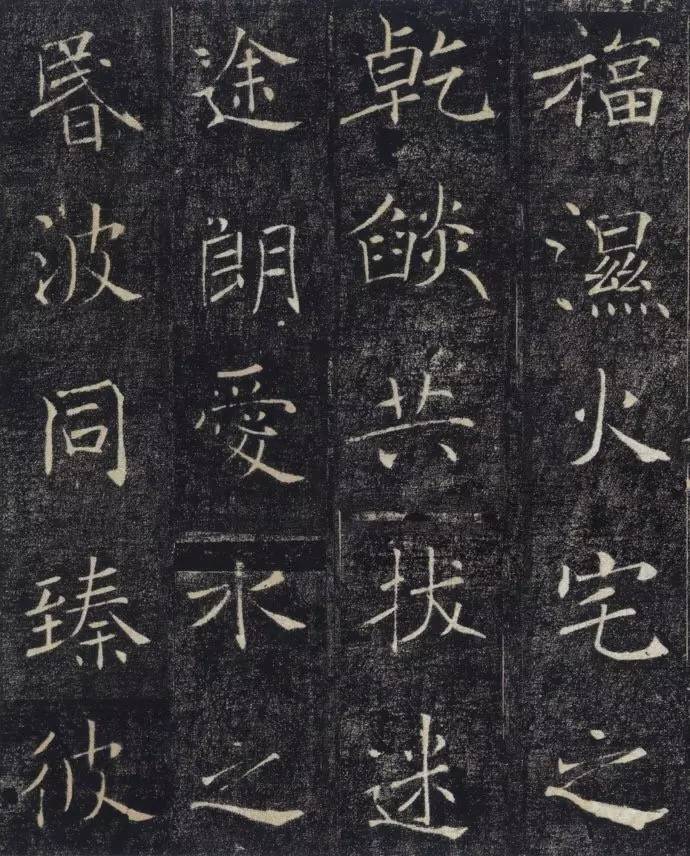 福濕火宅之
乾燄共拔迷
途朗愛水之
昬波同臻彼